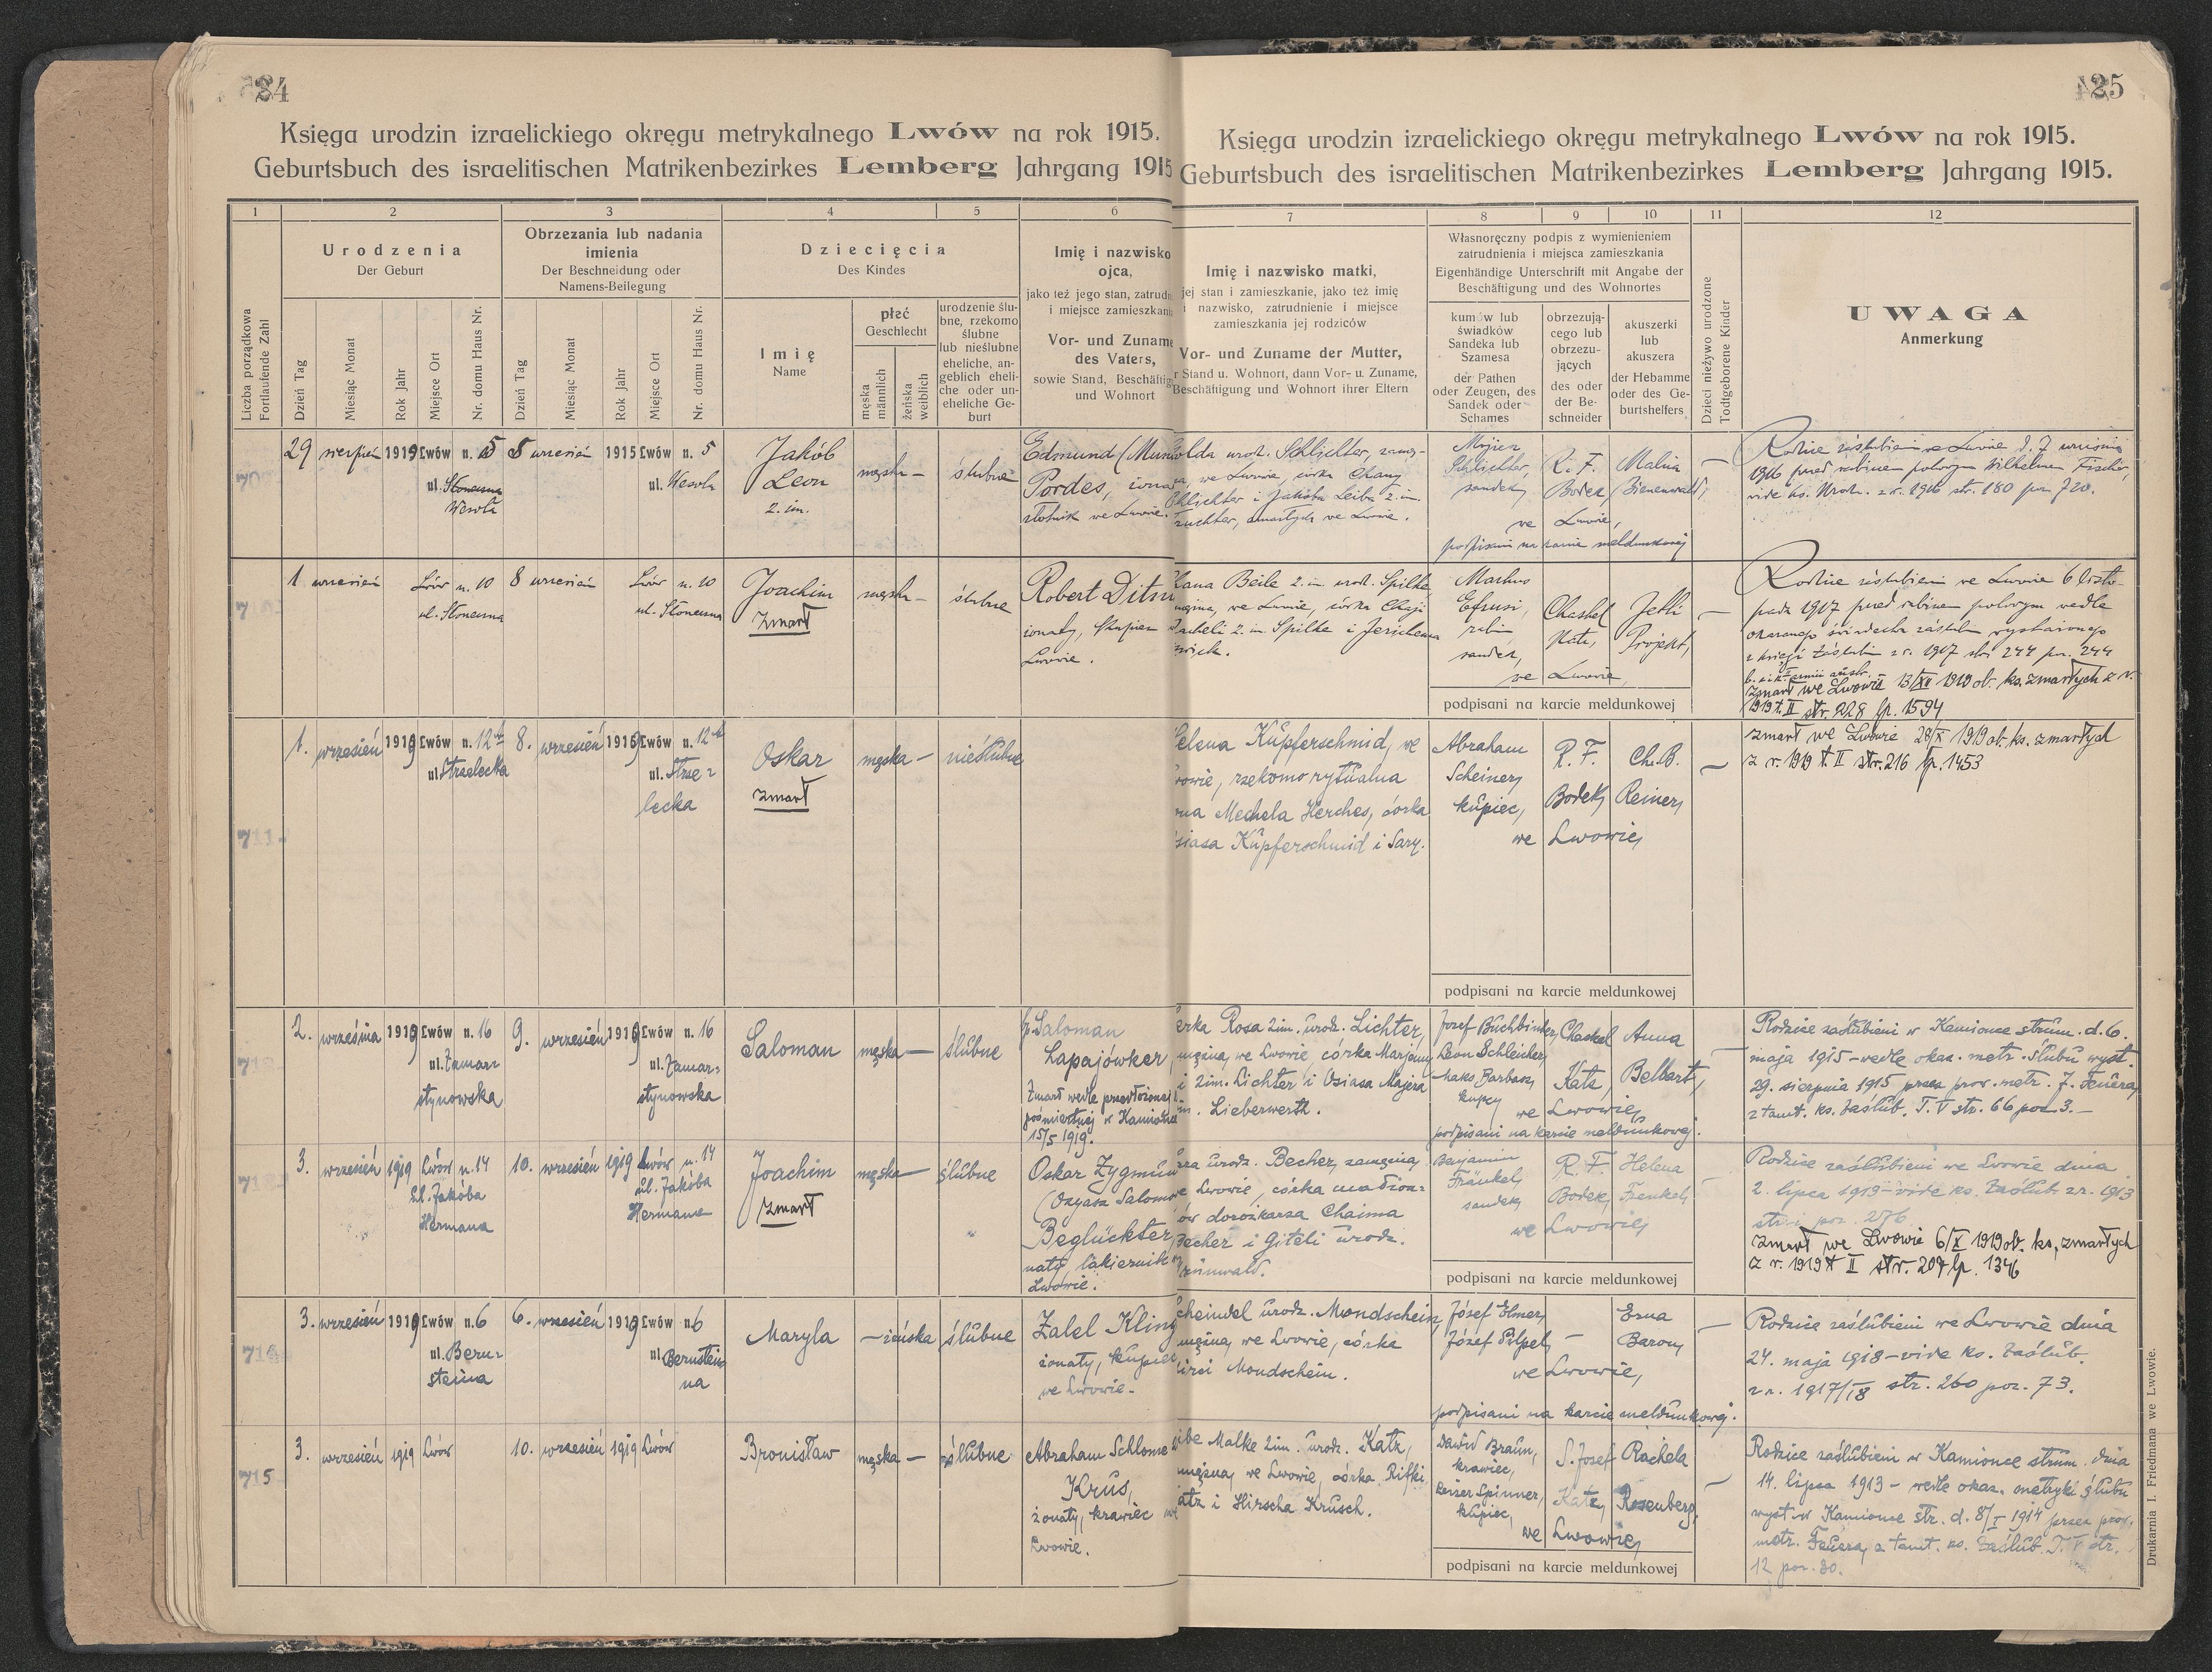 24
Księga urodzin izraelickiego okręgu metrykalnego Lwów na rok 1915.
Geburtsbuch des israelitischen Matrikenbezirkes Lemberg Jahrgang 1915
1 2 3 4 5 6
Liczba porządkowa
Fortlaufende Zahl
Urodzenia
Der Geburt
Dzień Tag
Miesiąc Monat
Rok Jahr
Miejsce Ort
Nr. domu Haus Nr.
Obrzezania lub nadania
imienia
Der Beschneidung oder
Namens-Beilegung
Dzień Tag
Miesiąc Monat
Rok Jahr
Miejsce Ort
Nr. domu Haus Nr.
Dziecięcia
Des Kindes
Imię
Name
płeć
Geschlecht
męska
männlich
żeńska
weiblich
urodzenie ślu-
bne, rzekomo
ślubne
lub nieślubne
eheliche, an-
geblich eheli-
che oder un-
eheliche Ge-
burt
Imię i nazwisko
ojca,
jako też jego stan, zatrudn
i miejsce zamieszkani
Vor- und Zuname
des Vaters,
sowie Stand, Beschäftig
und Wohnort
29 sierpień 1919 Lwów n. 5 8 wrzesień 1915 Lwów n. 5
ul. Słoneczna
Wesoła
ul. Wesoła
Jakób
Leon
2. im.
męska –
ślubne
Edmund (Mun
Pordes, żona
złotnik we Lwowie.
1 wrzesień Lwów n. 10 8 wrzesień Lwów n. 10
ul. Słoneczna ul. Słoneczna
Joachim
zmarł
męska –
ślubne
Robert
żonaty, kupiec
Lwowie.
711
1. wrzesień 1919 Lwów n. 12 8. wrzesień 1919 Lwów n. 12
ul. Strzelecka
ul. Strze-
lecka
Oskar
zmarł
męska – nieślubne
2. września 1919 Lwów n. 16 9. wrzesień 1919 Lwów n. 16
ul. Zamar-
stynowska
ul. Zamar-
stynowska
Saloman męska – ślubne
Saloman
Łapajówker
Zmarł wedle przedłożonej
pośmiertnej w Kamionce
15/5 1919.
3. wrzesień 1919 Lwów n. 14 10. wrzesień 1919 Lwów n. 14
ul. Jakóba
Hermana
ul. Jakóba
Hermana
Joachim
zmarł
męska – ślubne
Oskar Zygmun
(Ozyasz Salomo
Beglückter,
naty, lakiernik
Lwowie.
714
3. wrzesień 1919 Lwów n. 6 6. wrzesień 1919 Lwów n. 6
ul. Bern-
steina
ul. Bernstei-
na
Maryla – żeńska ślubne
Zalel Kling
żonaty, kupiec
we Lwowie.
715
3. wrzesień 1919 Lwów 10. wrzesień 1919 Lwów
Bronisław męska – ślubne
Abraham Schlome
Krus,
żonaty, krawiec we
Lwowie.
25
Księga urodzin izraelickiego okręgu metrykalnego Lwów na rok 1915.
Geburtsbuch des israelitischen Matrikenbezirkes Lemberg Jahrgang 1915.
7 8 9 10 11 12
Imię i nazwisko matki,
jej stan i zamieszkanie, jako też imię
i nazwisko, zatrudnienie i miejsce
zamieszkania jej rodziców
Vor- und Zuname der Mutter,
r Stand u. Wohnort, dann Vor- u. Zuname,
Beschäftigung und Wohnort ihrer Eltern
Własnoręczny podpis z wymienieniem
zatrudnienia i miejsca zamieszkania
Eigenhändige Unterschrift mit Angabe der
Beschäftigung und des Wohnortes
kumów lub
świadków
Sandeka lub
Szamesa
der Pathen
oder Zeugen, des
Sandek oder
Schames
obrzezują-
cego lub
obrzezu-
jących
des oder
der Be-
schneider
akuszerki
lub
akuszera
der Hebamme
oder des Ge-
burtshelfers
Dzieci nieżywo urodzone
Todtgeborene Kinder
UWAGA
Anmerkung
olda urodz. Schlichter, zamę-
a, we Lwowie, córka Chany
Schlichter i Jakóba Leiba 2. im.
zmarłych we Lwowie.
Schlichter,
sandek,
R. F.
Bodek,
Malina
Bienenwald,
we Lwowie,
podpisani na karcie meldunkowej
Rodzice zaślubieni we Lwowie d. 7 września
1916 przed rabinem polowym Wilhelmem Fischer,
vide ks. str. 180 poz. 720.
Beile 2. im. urodz. Spilke,
mężna, we Lwowie, córka Chaji
Racheli 2. im. Spilke i
Markus
Efrusi,
rabin
sandek,
Chaskel
Katz,
Jetti
Projekt,
we Lwowie,
podpisani na karcie meldunkowej
Rodzice zaślubieni we Lwowie 6 listo-
pada 1917 przed rabinem polowym wedle
okazanego świadectwa zaślubin wystawionego
z księgi zaślubin z r. 1917 str. 244 poz. 244
zmarł we Lwowie 13/XII 1919 ob. ks. zmarłych z r.
1919 t. II str. 228 lp. 1594
Helena Küpferschmid, we
wowie, rzekomo rytualna
ona Mechela Herches, córka
siasa Küpferschmid i Sary.
Abraham
Scheiner,
kupiec,
R. F.
Bodek,
Ch. B.
Reiner,
we Lwowie,
podpisani na karcie meldunkowej
zmarł we Lwowie 28/X 1919 ob. ks. zmarłych
z r. 1919 t. II str. 216 lp. 1453
erka Rosa 2im. urodz. Lichter,
mężna, we Lwowie, córka Marjem
i 2im. Lichter i Osiasa Majera
m. Lieberwerth.
Josef Buchbinder,
Leon Schleicher,
Maks Barbasz,
kupcy
Chaskel
Katz,
Anna
Belbart,
we Lwowie,
podpisani na karcie meldunkowej.
Rodzice zaślubieni w Kamionce strum. d. 6.
maja 1915 – wedle okaz. metr. ślubu wyst.
29. sierpnia 1915 przez prow. metr. J. Feuera,
z tamt. ks. zaślub. T. V str. 66 poz. 3. –
urodz. Becher, zamężna,
we Lwowie, córka małżon-
ów dorożkarza Chaima
Becher i Giteli urodz.
Grünwald.
Benjamin
Fränkel,
sandek,
R. F.
Bodek,
Helena
Frenkel,
we Lwowie,
podpisani na karcie meldunkowej
Rodzice zaślubieni we Lwowie dnia
2. lipca 1913 – vide ks. zaślub. z r. 1913
str. poz. 276.
zmarł we Lwowie 6/X 1919 ob. ks. zmarłych
z r. 1919 t. II str. 204 lp. 1346
cheindel urodz. Mondschein,
mężna, we Lwowie, córka
Hirci Mondschein.
Józef Elmer,
Józef Pilpel,
–
Erna
Baron,
we Lwowie,
podpisani na karcie meldunkowej.
Rodzice zaślubieni we Lwowie dnia
24. maja 1918 – vide ks. zaślub.
z r. 1917/18 str. 260 poz. 73.
ibe Malke 2im. urodz. Katz,
mężna, we Lwowie, córka Rifki
atz i Hirscha Krusch.
Dawid Braun,
krawiec,
Leizer Spinner,
kupiec,
S. Josef
Katz,
Rachela
Rosenberg,
we Lwowie,
podpisani na karcie meldunkowej
Rodzice zaślubieni w Kamionce strum. dnia
14. lipca 1913 – wedle okaz. metryki ślubu
wyst. w Kamionce str. d. 8/I 1914 przez prow.
metr. Feuera, z tamt. ks. zaślub. T. V str.
12 poz. 30.
Drukarnia I. Friedmana we Lwowie.